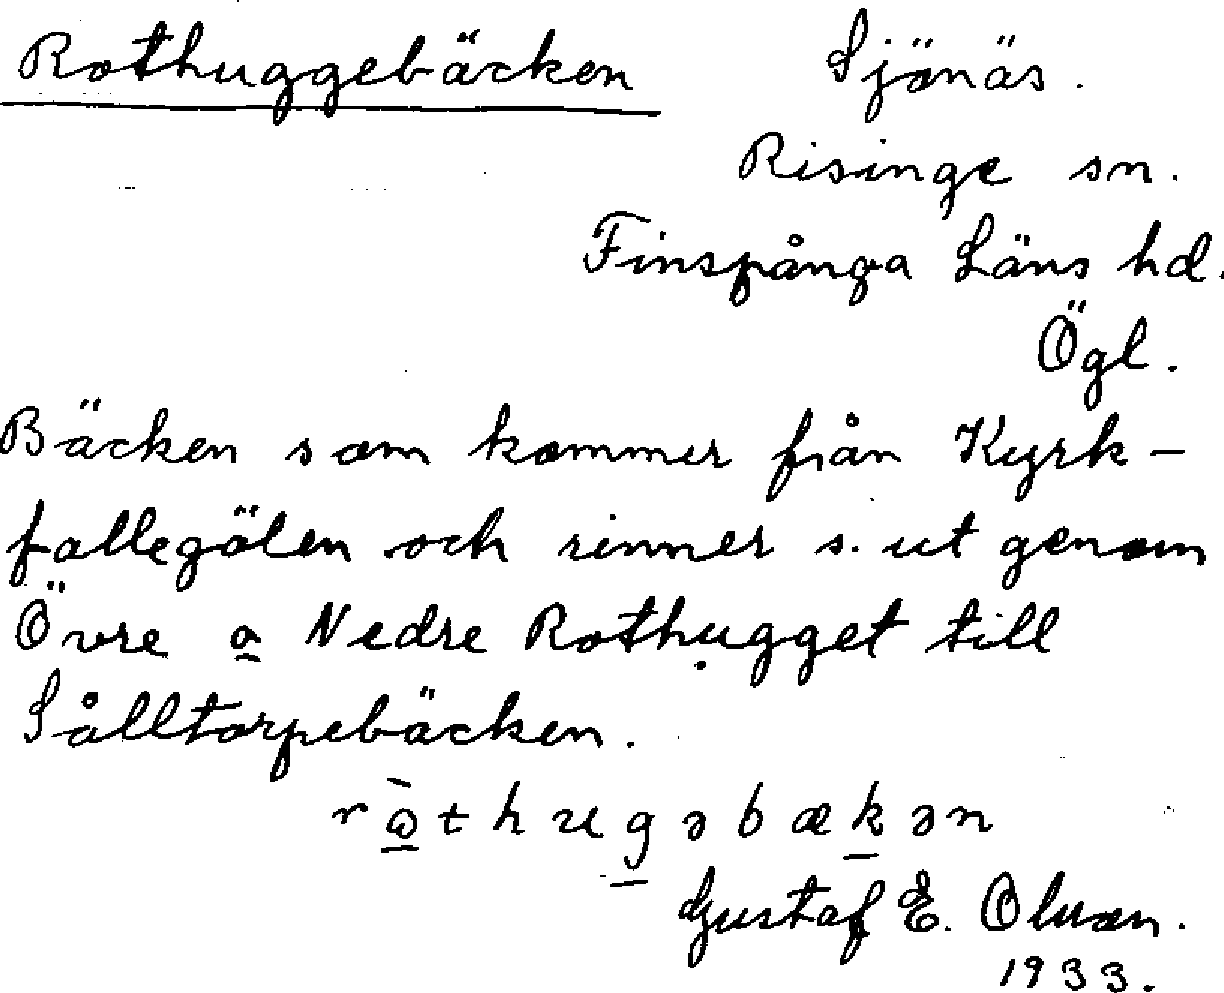 Rothuggebäcken Sjönäs.
Risinge sn.
Finspånga Läns hd.
Ögl.
Bäcken som kommer från Kyrk-
fallegölen och rinner s. ut genom
Övre o Nedre Rothugget till
Sålltorpebäcken.
Gustaf E. Olsson.
1933.